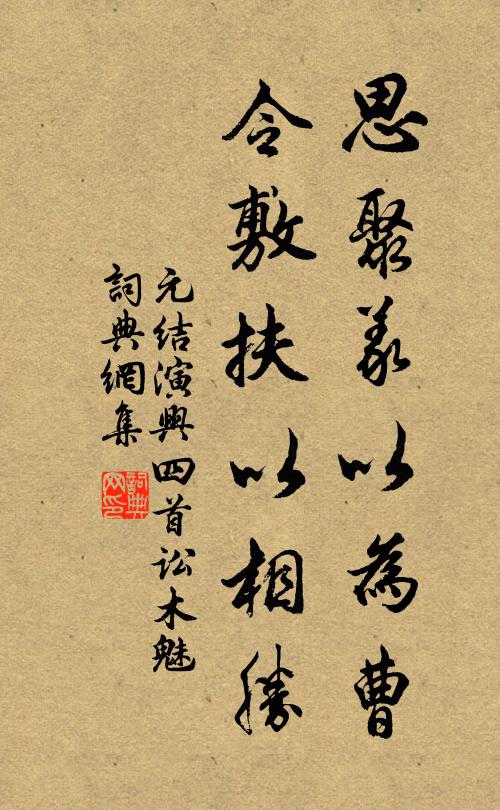 思聚義以為曹
令敷扶以相勝
元結演興四首訟木魅
詞典網集
詞典網印